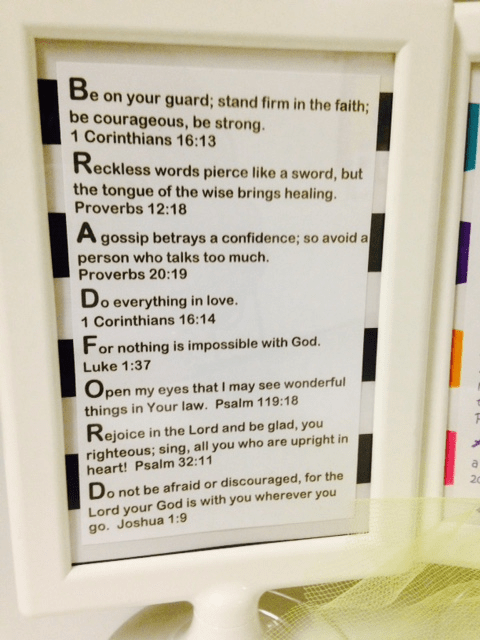 Be on your guard; stand firm in the faith;
be courageous, be strong.
1 Corinthians 16:13
Reckless words pierce like a sword, but
the tongue of the wise brings healing.
Proverbs 12:18
A gossip betrays a confidence; so avoid a
person who talks too much.
Proverbs 20:19
Do everything in love.
1 Corinthians 16:14
For nothing is impossible with God.
Luke 1:37
Open my eyes that I may see wonderful
things in Your law. Psalm 119:18
Rejoice in the Lord and be glad, you
righteous; sing, all you who are upright in
heart! Psalm 32:11
Do not be afraid or discouraged, for the
Lord your God is with you wherever you
go. Joshua 1:9